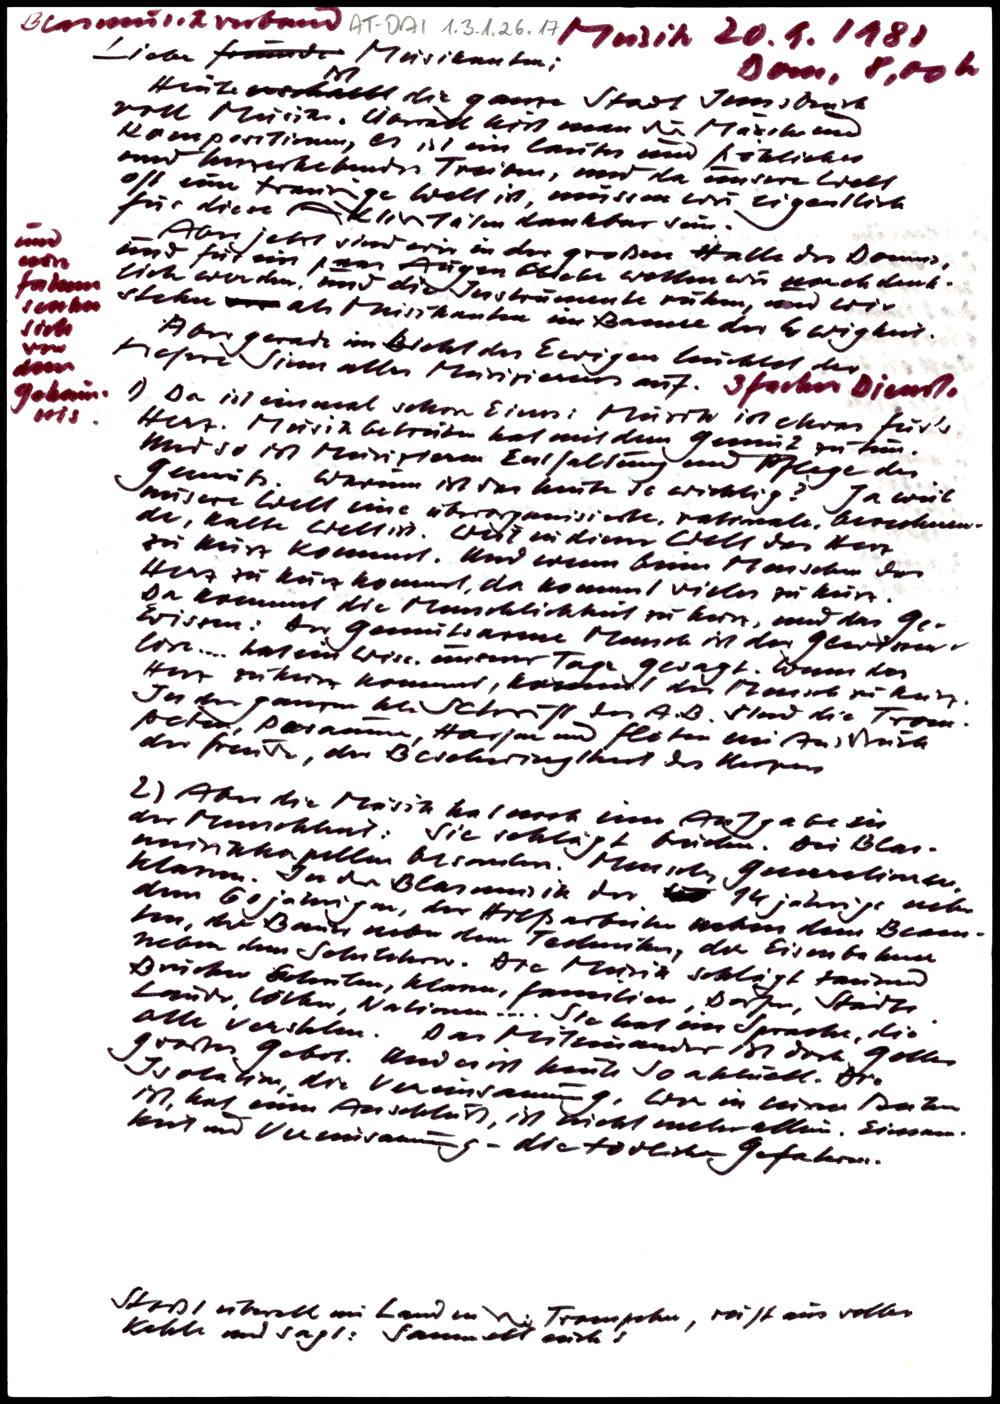 Blasmusikverband AT-DAI 1.3.1.26.17 Musik 20.9.1981
Dom, 8,00 h
Liebe Freunde Musikanten!
Heute ist die ganze Stadt Innsbruck
voll Musik. Überall hört man die Märsche und
Kompositionen, es ist ein lautes und fröhliches
und herzerhebendes Treiben, und da unsere Welt
oft eine traurige Welt ist, müssen wir eigentlich
für diese Aktivitäten dankbar sein.
Aber jetzt sind wir in der großen Halle des Domes,
und für ein paar Augenblicke wollen wir nachdenk-
lich werden, und die Instrumente ruhen, und wir
stehen als Musikanten im Banne der Ewigkeit.
und
wir
falten
sich
vor
dem
Geheim-
nis.
Aber gerade im Licht des Ewigen leuchtet der
tiefere Sinn alles Musizierens auf. 3facher Dienst.
1) Da ist einmal schon Eines: Musik ist etwas für's
Herz. Musik betreiben hat mit dem Gemüt zu tun.
Und so ist Musizieren Entfaltung und Pflege des
Gemüts. Warum ist das heute so wichtig? Ja weil
unsere Welt eine überorganisierte, rationale, berechnen-
de, kalte Welt ist. Weil in dieser Welt das Herz
zu kurz kommt. Und wenn beim Menschen das
Herz zu kurz kommt, da kommt vieles zu kurz.
Da kommt die Menschlichkeit zu kurz, und das Ge-
wissen: Der gemütsarme Mensch ist der gewissen-
lose.... hat ein Wiss. unserer Tage gesagt. Wenn das
Herz zu kurz kommt, kommt der Mensch zu kurz.
In der ganzen hl. Schrift des A.B. sind die Trom-
peten, Posaunen, Harfen und Flöten ein Ausdruck
der Freude, der Beschwingtheit des Herzens
2) Aber die Musik hat noch eine Aufgabe in
der Menschheit: Sie schlägt Brücken. Die Blas-
musikkapellen besonders. Menschen, Generationen,
Klassen. In der Blasmusik der 14 jährige neben
dem 60 jährigen, der Hilfsarbeiter neben dem Beam-
ten, der Bauer neben dem Techniker, der Eisenbahner
neben dem Schilehrer. Die Musik schlägt tausend
Brücken Schulen, Klassen, Familien, Dörfer, Städte
Länder, Völker, Nationen.... Sie hat eine Sprache, die
alle verstehen. Das Miteinander ist doch Gottes
großes Gebot. Und es ist heute so aktuell. Die
Isolation, die Vereinsamung. Wer in einer Partie
ist, hat einen Anschluß, ist nicht mehr allein. Einsam-
keit und Vereinsamung - die tödlichen Gefahren.
Stoßt überall im Land in die Trompeten, ruft aus voller
Kehle und sagt: Sammelt euch!